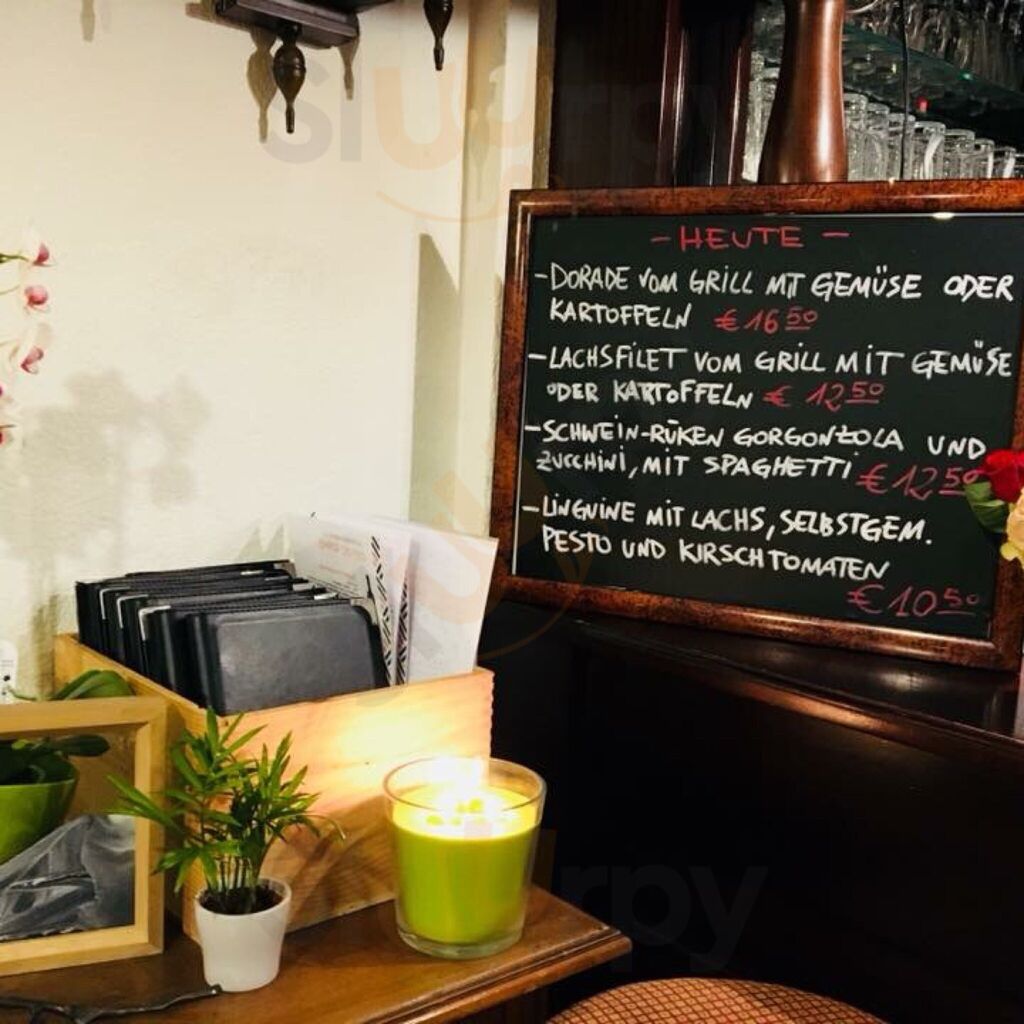 - HEUTE -
- DORADE VOM GRILL MIT GEMÜSE ODER
KARTOFFELN € 16 50
- LACHSFILET VOM GRILL MIT GEMÜSE
ODER KARTOFFELN € 12 50
- SCHWEIN-RÜKEN GORGONZOLA UND
ZUCCHINI, MIT SPAGHETTI € 12 50
- LINGUINE MIT LACHS, SELBSTGEM.
PESTO UND KIRSCHTOMATEN
€ 10 50
sluurpy
sluurpy